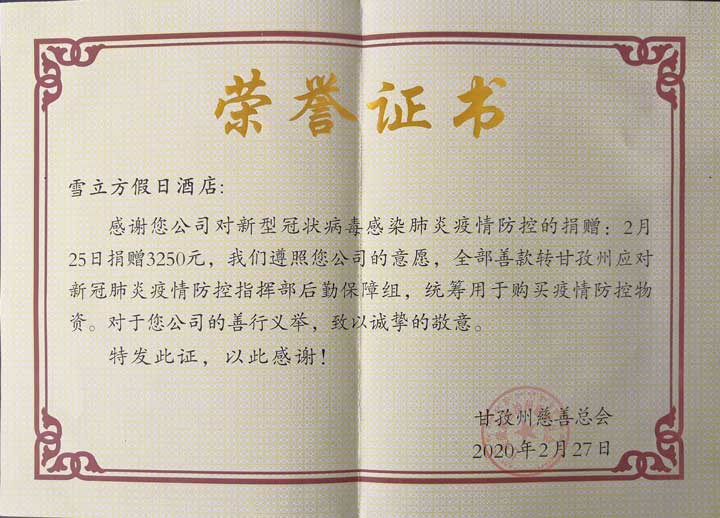 荣誉证书
雪立方假日酒店:
感谢您公司对新型冠状病毒感染肺炎疫情防控的捐赠：2月
25日捐赠3250元，我们遵照您公司的意愿，全部善款转甘孜州应对
新冠肺炎疫情防控指挥部后勤保障组，统筹用于购买疫情防控物
资。对于您公司的善行义举，致以诚挚的敬意。
特发此证，以此感谢！
甘孜州慈善总会
2020年2月27日